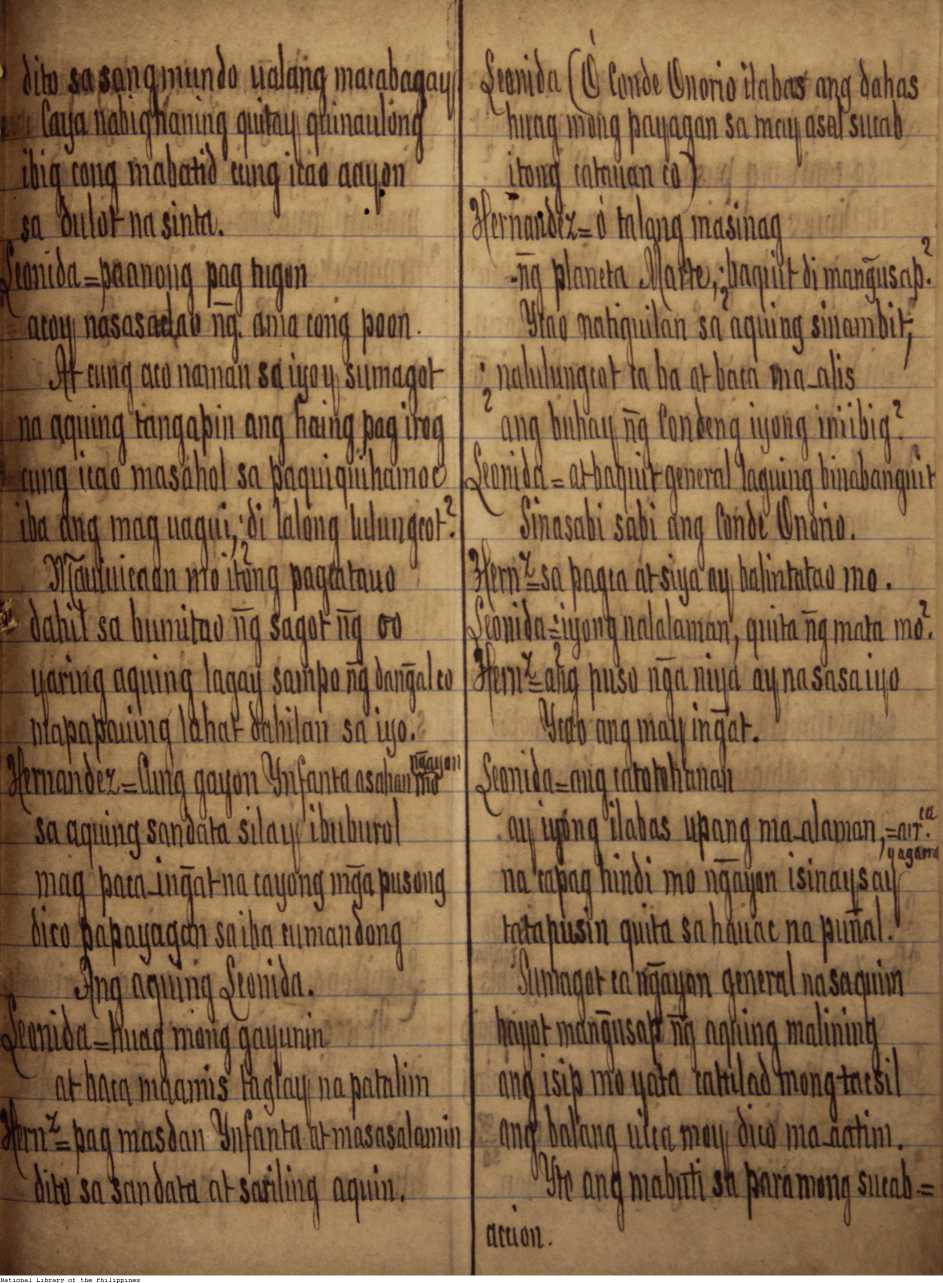 dito sa sang mundo ualang macabagay
Caya nabighaning quitay quinaulong
ibig cong mabatid cung icao aayon
sa dulot na sinta.
Leonida=paanong pag tugon
acoy nasasaclao ñg ama cong poon.
At cung aco naman sa iyoy sumagot
na aquing tangapin ang haing pag irog
cung icao masahol sa paquiquihamoc
iba ang mag uagui, ¿di lalong lulungcot?
Mauiuicaan mo itong pagcatauo
dahil sa bumitao ñg sagot ñg oo
yaring aquing lagay sampo ñg dan̄gal co
mapapauing lahat dahilan sa iyo.
Hernandez=Cung gayon Ynfanta asahan mo n̄gayon
sa aquing sandata silay ibuburol
mag paca-in̄gat na cayong mn̄ga pusong
dico papayagan sa iba cumandong
Ang aquing Leonida.
Leonida=huag mong gayunin
at baca maamis taglay na patalim
Hernz=pag masdan Ynfanta at masasalamin
dito sa sandata at sariling aquin.
Leonida (Ó Conde Onorio ilabas ang dahas
huag mong payagan sa may asal sucab
itong catauan co)
Hernandez=ó talang masinag
n̄g planeta Marte, ¿baquit di man̄gusap?
Ycao natiguilan sa aquing sinambit,
¿nalulungcot ca ba at baca ma-alis
ang buhay n̄g Condeng iyong iniibig?
Leonida=at baquit general laguing binabanguit
Sinasabi sabi ang Conde Onorio.
Hernz=sa pagca at siya ay balintatao mo.
Leonida=¿iyong nalalaman, quita n̄g mata mo?
Hernz=ang puso n̄ga niya ay nasasaiyo
Ycao ang may in̄gat.
Leonida=ang catotohanan
ay iyong ilabas upang ma-alaman,
na capag hindi mo n̄gayon isinaysay
tatapusin quita sa hauac na puñal.
Sumagot ca n̄gayon general na saquim
hayot man̄gusap n̄g aquing malining
ang isip mo yata cattilad mong tacsil
ang balang uica moy dico ma-aatim.
Yto ang mabuti sa paramong sucab=
accion.
National Library of the Philippines